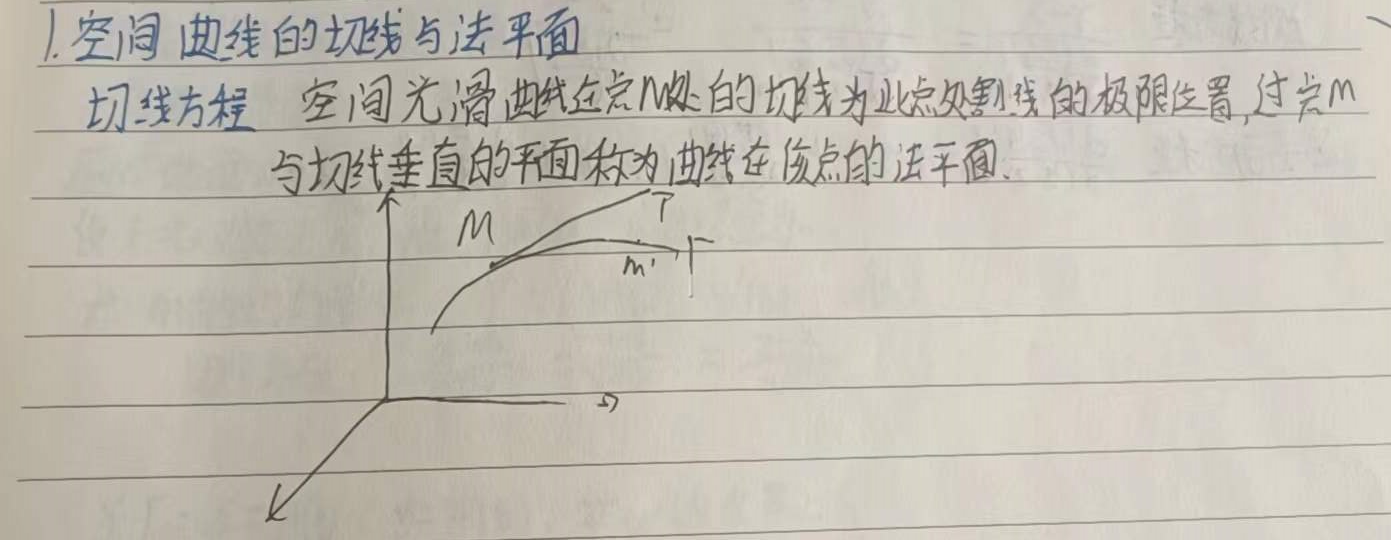 1. 空间曲线的切线与法平面
切线方程 空间光滑曲线在点M处的切线为此点处割线的极限位置,过点M
与切线垂直的平面称为曲线在该点的法平面.
M
T
m'
Γ